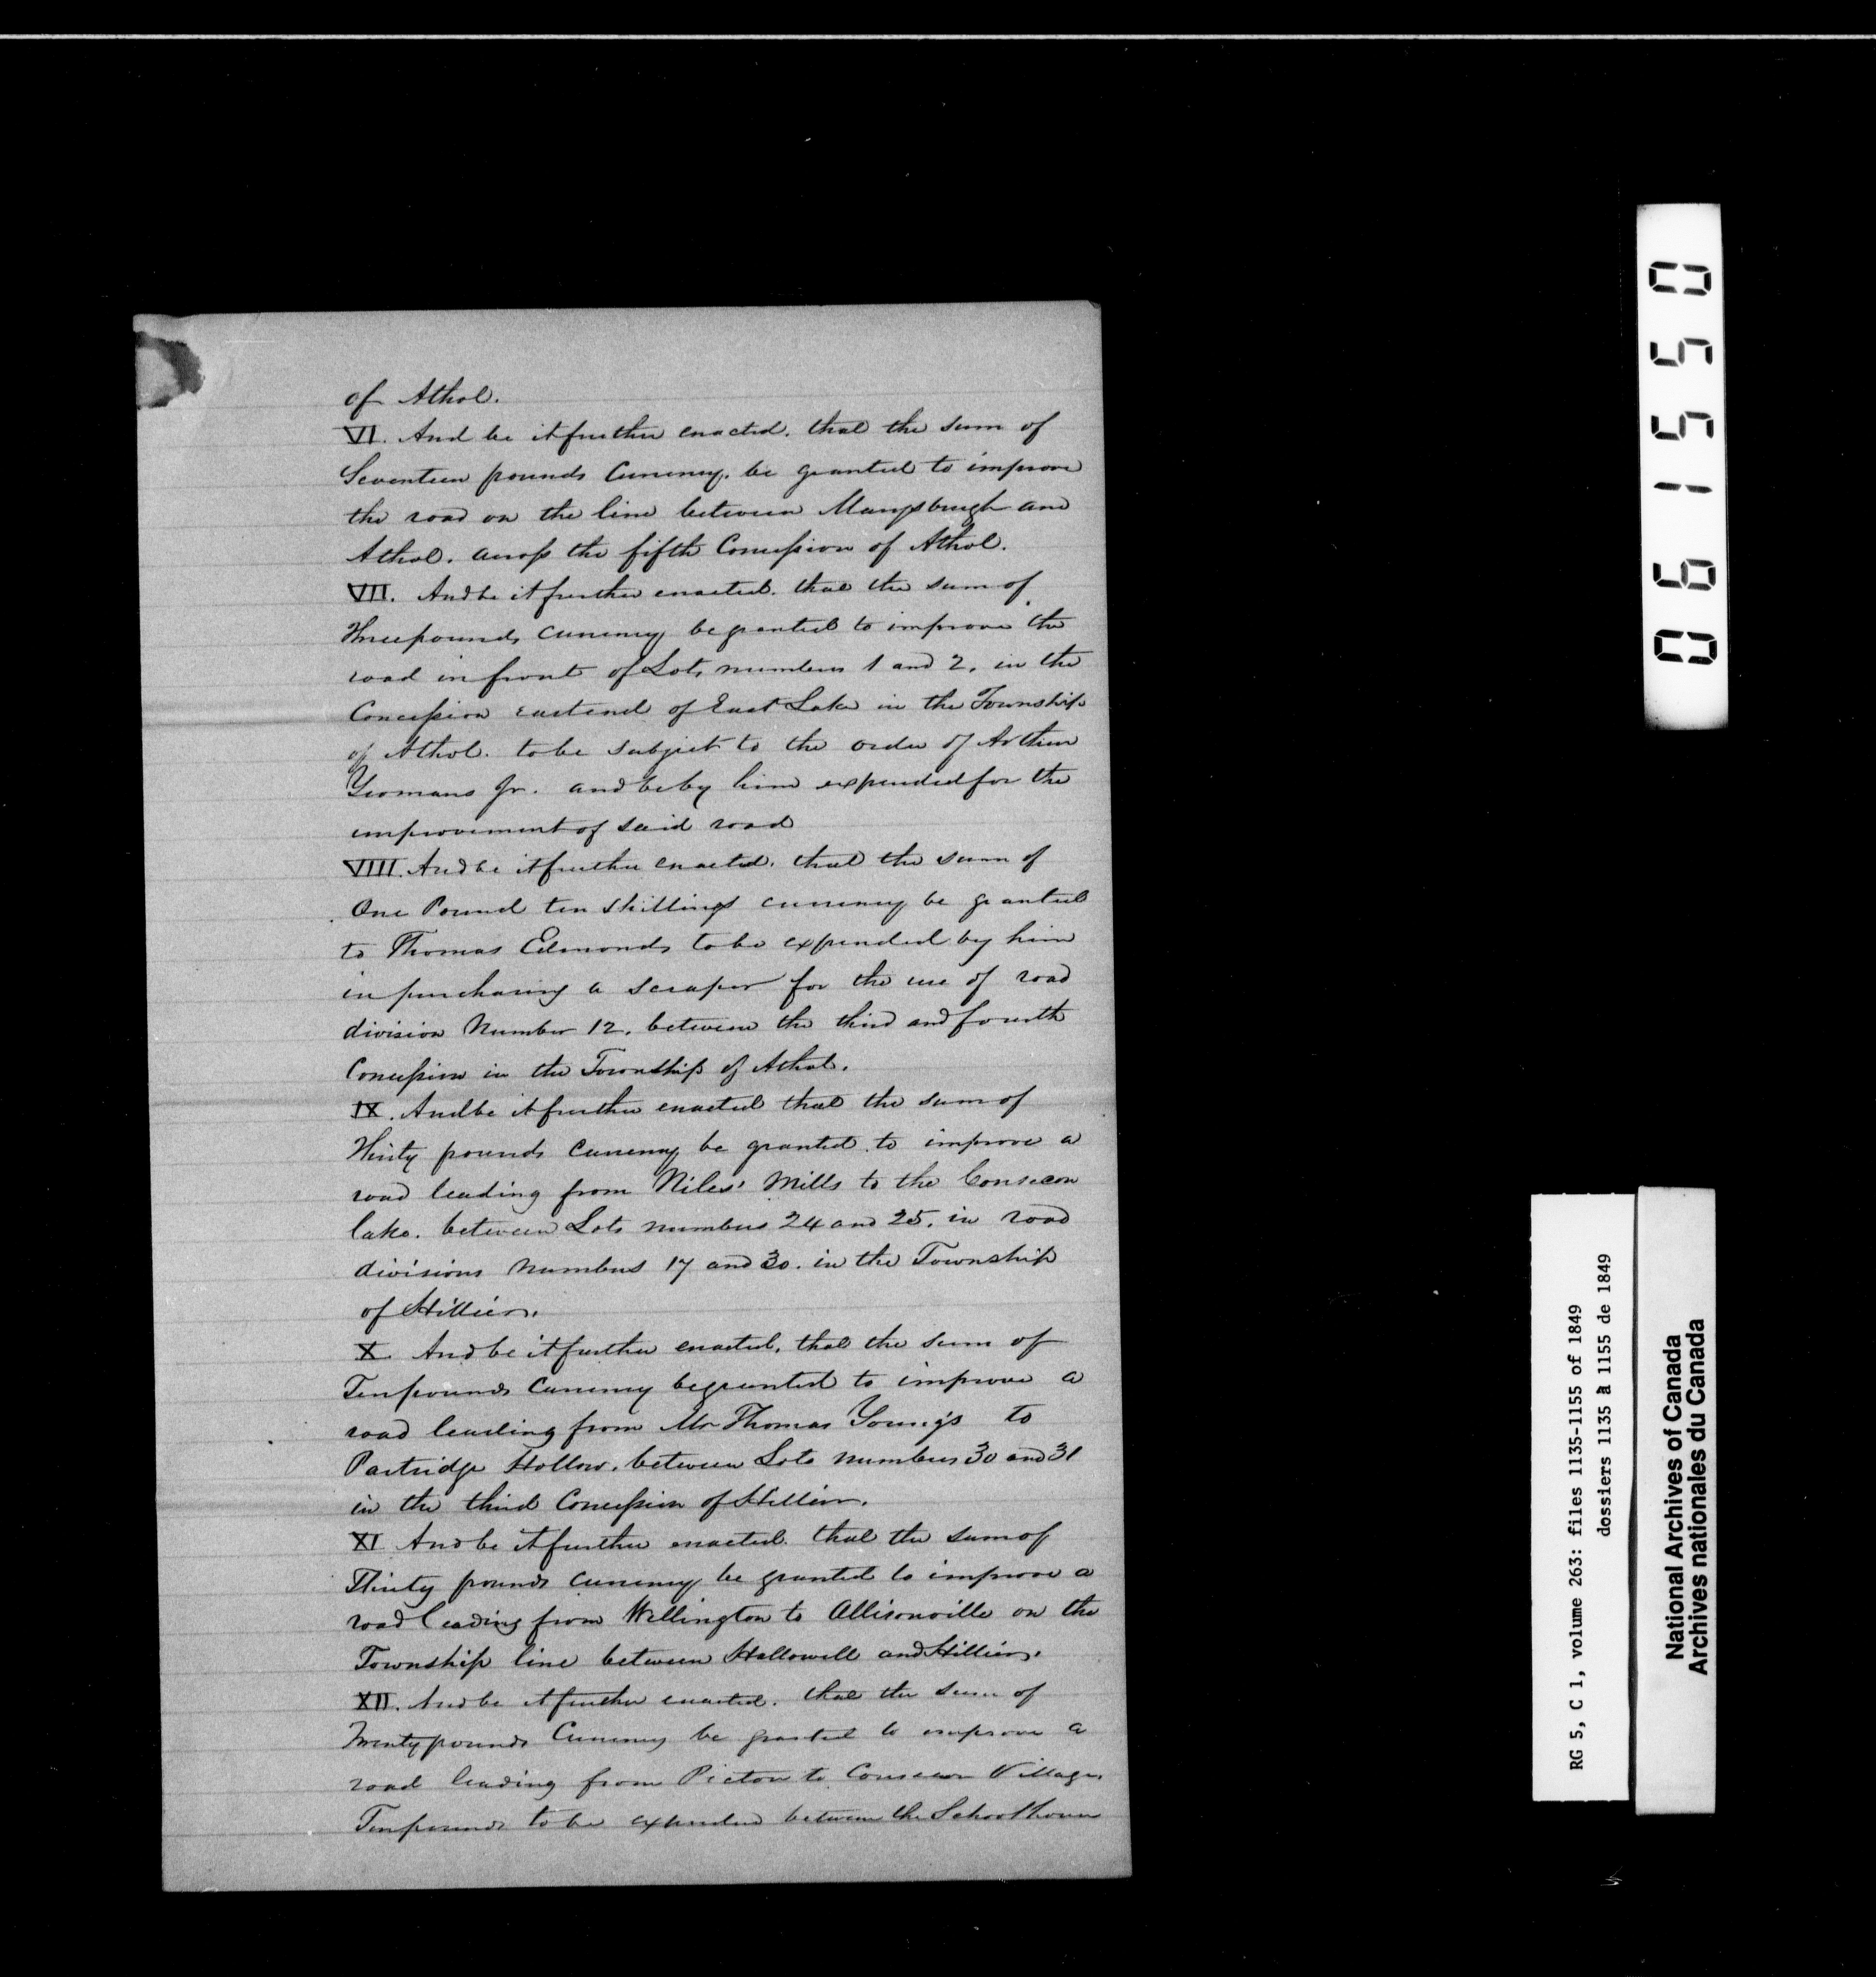 of Athol.
VI. And be it further enacted. that the sum of
Seventeen pounds Currency. be granted to improve
the road on the line between Marysburgh and
Athol. across the fifth Concession of Athol.
VII. And be it further enacted. that the sum of
Three pounds currency be granted to improve the
road in front of Lots numbers 1 and 2. in the
Concession east end of East Lake in the Township
of Athol. to be subject to the order of Arthur
Yeomans Jr. and be by him expended for the
improvement of said road
VIII. And be it further enacted. that the sum of
One Pound ten Shillings currency be granted
to Thomas Edmonds to be expended by him
in purchasing a scraper for the use of road
division Number 12. between the third and fourth
Concession in the Township of Athol.
IX. And be it further enacted that the sum of
Thirty pounds Currency be granted to improve a
road leading from Niles' Mills to the Consecon
lake. between Lots numbers 24 and 25. in road
divisions Numbers 17 and 30. in the Township
of Hillier.
X. And be it further enacted, that the sum of
Ten pounds Currency be granted to improve a
road leading from Mr Thomas Young's to
Partridge Hollow. between Lots numbers 30 and 31
in the third Concession of Hillier.
XI And be it further enacted. that the sum of
Thirty pounds currency be granted to improve a
road leading from Wellington to Allisonville on the
Township line between Hallowell and Hillier.
XII. And be it further enacted. that the sum of
Twenty pounds Currency be granted to improve a
road leading from Picton to Consecon Village.
Ten pounds to be expended between the School house
061550
RG 5, C 1, volume 263: files 1135-1155 of 1849
dossiers 1135 à 1155 de 1849
National Archives of Canada
Archives nationales du Canada